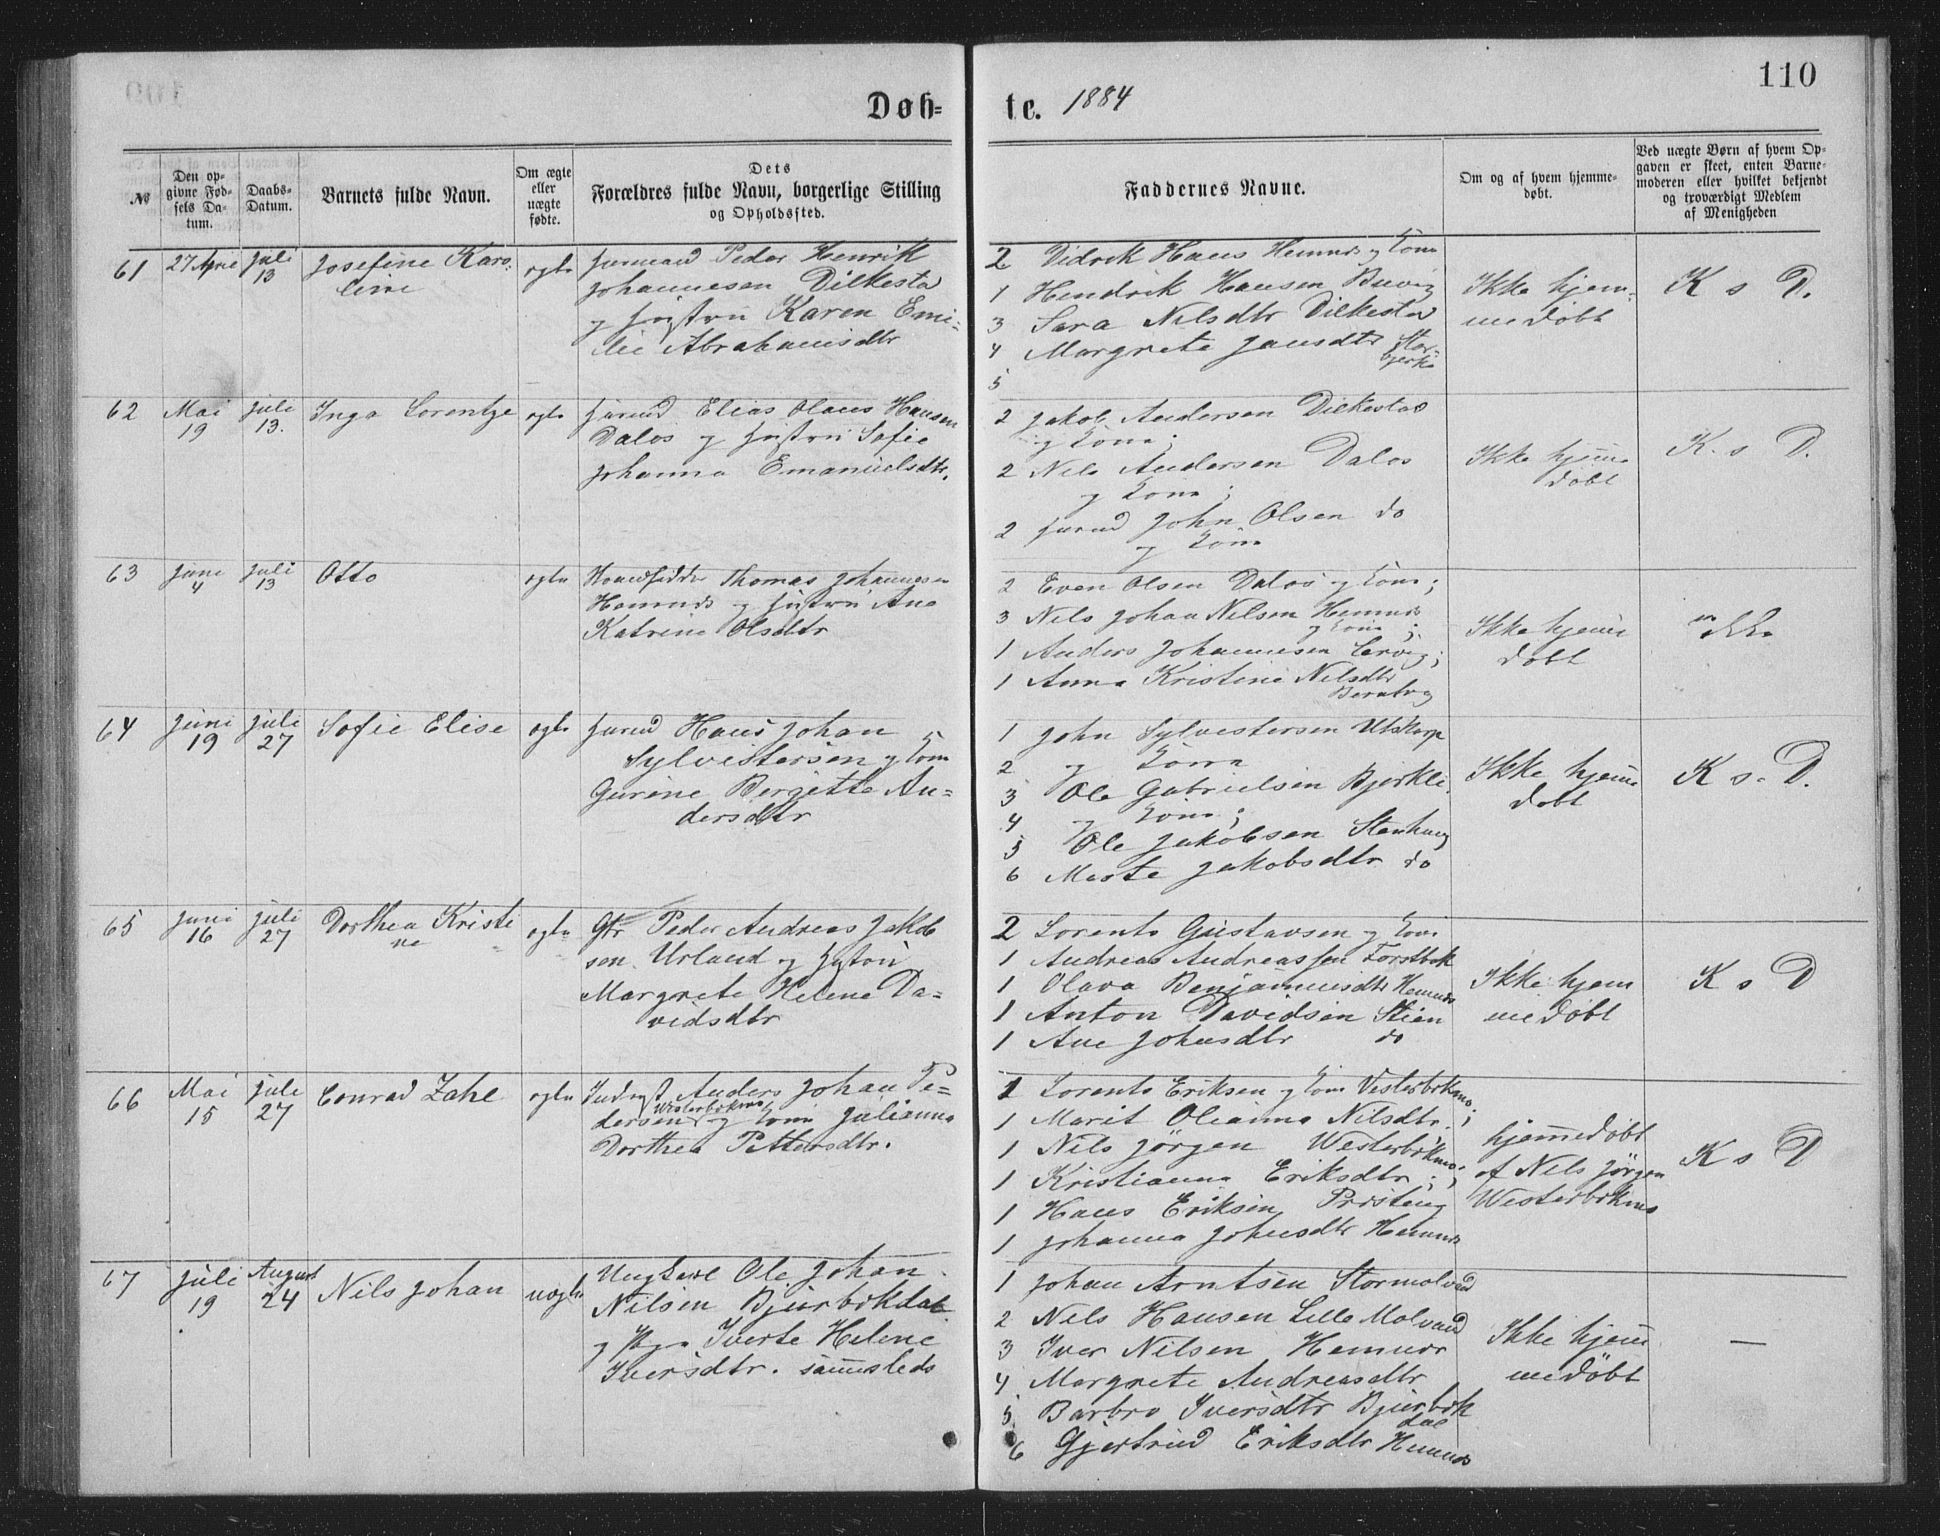 110
Døb=
te. 1884
№
Den op-
givne Fød-
sels Da-
tum.
Daabs-
Datum.
Barnets fulde Navn.
Om ægte
eller
uægte
fødte.
Dets
Forældres fulde Navn, borgerlige Stilling
og Opholdssted.
Faddernes Navne.
Om og af hvem hjemme-
døbt.
Ved uægte Børn af hvem Op-
gaven er skeet, enten Barne-
moderen eller hvilket bekjendt
og troværdigt Medlem
af Menigheden
61
27 April
Juli
13
Josefine Karo-
line
ogte
Peder Henrik
Johannesen Dilkestad
og Karen Emi-
lie Abrahamsdtr
2 Didrik Hans Hemnes og Kone
1 Hendrik Hansen
3 Sara Nilsdtr Dilkestad
4 Margrete Jansdtr
5
Ikke hjem-
medøbt
K s D.
62
Mai
19
Juli
13.
Inga Lorentze
ogte
Elias Olaus Hansen
Dalos og Hustru Sofie
Johanna Emanuelsdtr.
2 Jakob Andersen Dilkestad
og Kone;
2 Nils Andersen Dalos
og Kone;
2 John Olsen do
og Kone
Ikke hjemme
døbt
K. s D.
63
Juni
4
Juli
13
Otto
ogte
Thomas Johannesen
Hemnes og Hustru Ane
Katrine Olsdtr
2 Even Olsen Dalos og Kone;
3 Nils Johan Nilsen Hemnes
og Kone;
1 Anders Johannesen
1 Anna Kristine Nilsdtr
Ikke hjemme
døbt
64
Juni
19
Juli
27
Sofie Elise
ogte
Hans Johan
Sylvestersen og Kone
Gurine Bergitte An=
dersdtr
1 John Sylvestersen Utskarp
2 og Kone
3 Ole Gabrielsen Bjerkli.
4 og Kone;
5 Ole Jakobsen Stenhaug
6 Marte Jakobsdtr do
Ikke hjemme
døbt
K s. D.
65
Juni
16
Juli
27
Dorthea Kristi
ne
ogte
Peder Andreas Jakob
sen Urland og Hustru
Margrete Helene Da=
vidsdtr
2 Lorents Gustavsen og Kone
1 Andreas Andreassen
1 Olava Benjaminsdtr Hemnes
1 Anton Davidsen Stien
1 Ane Johnsdtr do
Ikke hjem
medøbt
K s D
66
Mai
15
Juli
27
Conrad Zahl
ogte
Inderst Anders Johan Pe=
Westerbekmo
dersen og Kone Julianna
Dorthea Pettersdtr.
1 Lorents Eriksen og Kone Vesterbekmo;
1 Marit Oleanna Nilsdtr;
1 Nils Jørgen Westerbekmo;
1 Kristianna Eriksdtr;
1 Hans Eriksen Presteng
1 Johanna Johnsdtr Hemnes
hjemmedøbt
af Nils Jørgen
Westerbekmo
K s D
67
Juli
19
August
24
Nils Johan
uægte
Ungkarl Ole Johan
Nilsen Bjurbekdal
og Pige Iverte Helene
Iversdtr. sammesteds
1 Johan Arntsen Stormolvand
2 Nils Hansen Lille Molvand
3 Iver Nilsen Hemnes
4 Margrete Andreasdtr
5 Barbro Iversdtr Bjurbek
dal
6 Gjertrud Eriksdtr Hemnes
Ikke hjem
medøbt
—